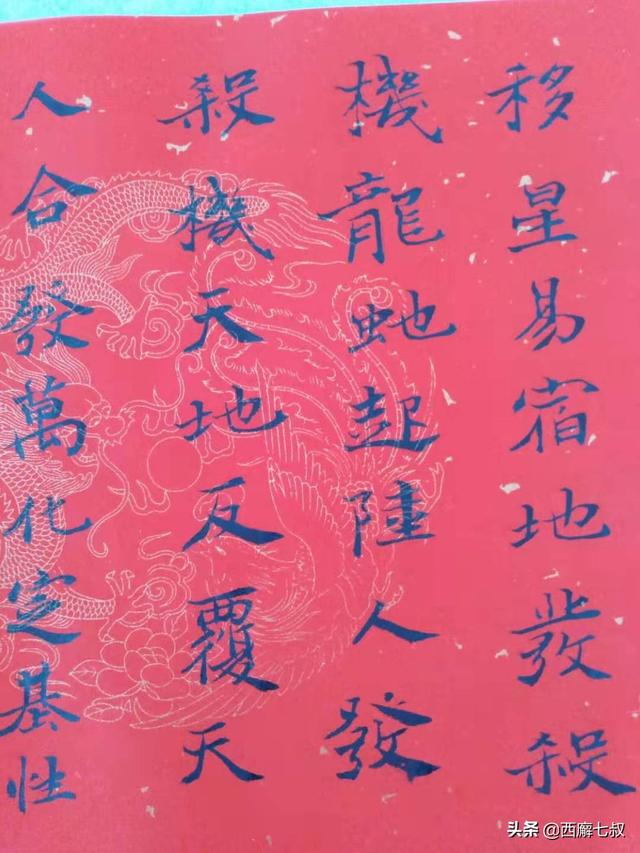 移星易宿地發殺
機龍虵起陸人發
殺機天地反覆天
人合發萬化定基性
头条 @西廨七叔